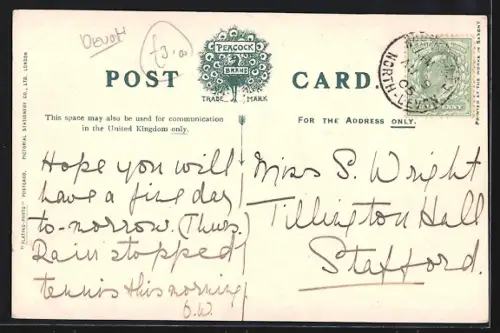 Devon
£3.00
PEACOCK
BRAND
TRADE MARK
POST CARD.
This space may also be used for communication
in the United Kingdom only.
FOR THE ADDRESS ONLY.
Hope you will
have a fine day
to-morrow. (Thurs.)
Rain stopped
tennis this morning.
O.W.
Miss S. Wright
Tillington Hall
Stafford.
NORTH-DEVON
05
"PLATINO-PHOTO" POSTCARD. PICTORIAL STATIONERY CO., LTD. LONDON
PRINTED AT THE WORKS IN SAXONY